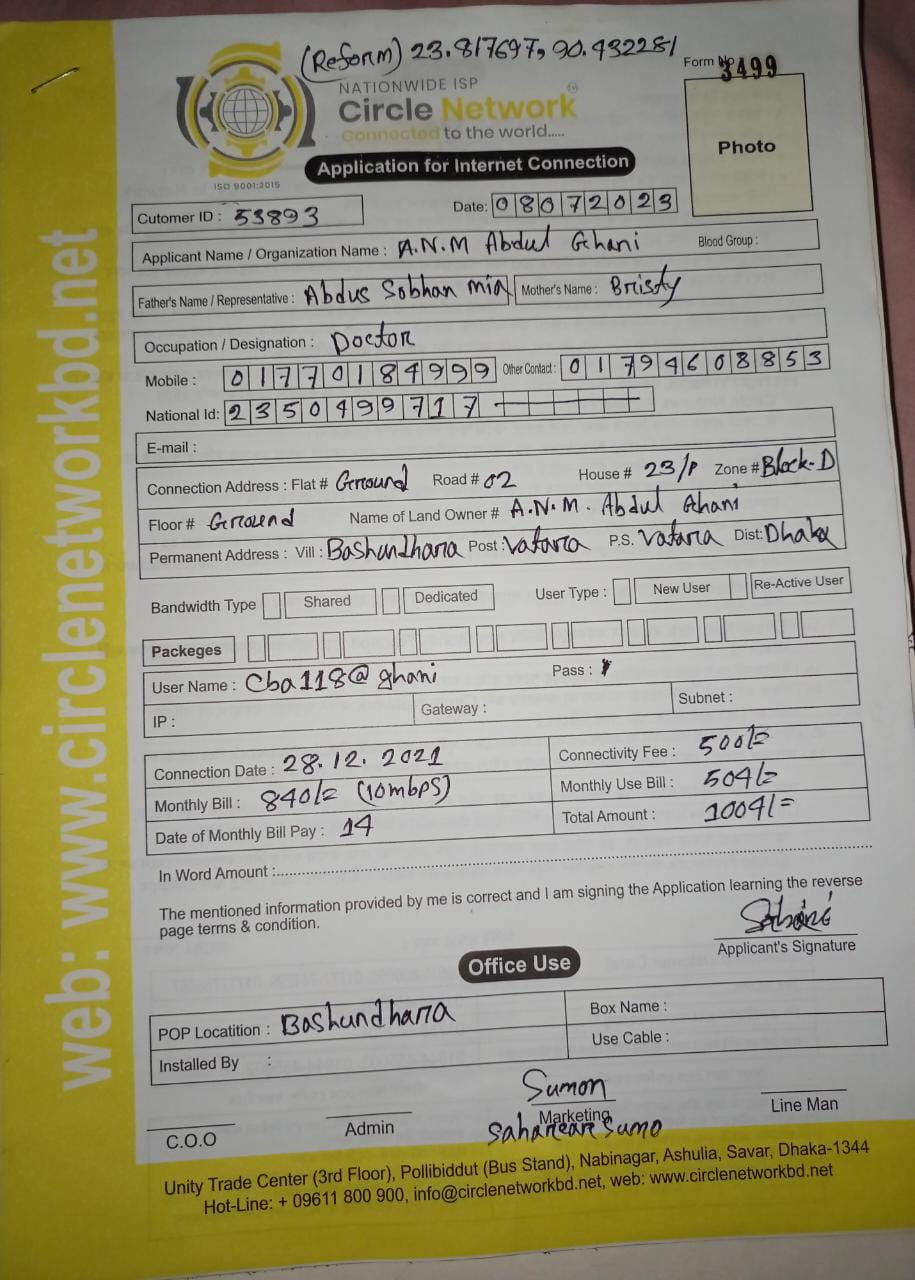 (Reform) 23.817697, 90.432281
Form No 3499
NATIONWIDE ISP
Circle Network
Connected to the world.....
ISO 9001:2015
Application for Internet Connection
Photo
web: www.circlenetworkbd.net
Cutomer ID : 53893
Date: 08072023
Applicant Name / Organization Name : A.N.M Abdul Ghani Blood Group :
Father's Name / Representative : Abdus Sobhan mia Mother's Name : Bristy
Occupation / Designation : Doctor
Mobile : 01770184999 Other Contact : 01794608853
National Id: 2350499717
E-mail :
Connection Address : Flat # Ground Road # 02 House # 23/P Zone # Block-D
Floor # Ground Name of Land Owner # A.N.M. Abdul Ghani
Permanent Address : Vill : Bashundhara Post : Vatara P.S. Vatara Dist: Dhaka
Bandwidth Type Shared Dedicated User Type : New User Re-Active User
Packeges
User Name : Cba118@ghani Pass :
IP : Gateway : Subnet :
Connection Date : 28.12.2021 Connectivity Fee : 500/=
Monthly Bill : 840/= (10mbps) Monthly Use Bill : 504/=
Date of Monthly Bill Pay : 14 Total Amount : 1004/=
In Word Amount :
The mentioned information provided by me is correct and I am signing the Application learning the reverse
page terms & condition.
Applicant's Signature
Office Use
POP Locatition : Bashundhara Box Name :
Installed By : Use Cable :
Sumon
C.O.O Admin Marketing Line Man
Unity Trade Center (3rd Floor), Pollibiddut (Bus Stand), Nabinagar, Ashulia, Savar, Dhaka-1344
Hot-Line: + 09611 800 900, info@circlenetworkbd.net, web: www.circlenetworkbd.net